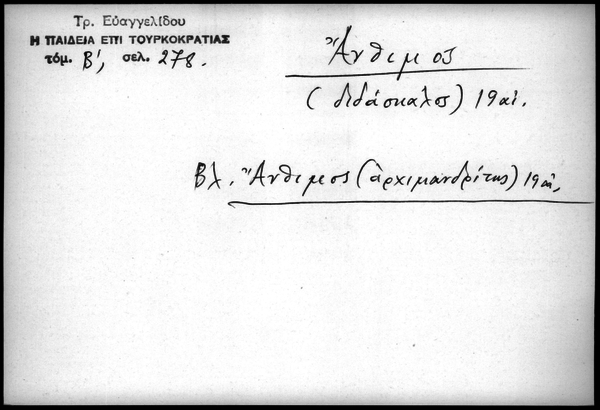 Τρ. Εὐαγγελίδου
Η ΠΑΙΔΕΙΑ ΕΠΙ ΤΟΥΡΚΟΚΡΑΤΙΑΣ
τόμ. Β', σελ. 278.
Ἄνθιμος
(διδάσκαλος) 19 αἰ.
Βλ. Ἄνθιμος (ἀρχιμανδρίτης) 19 αἰ.